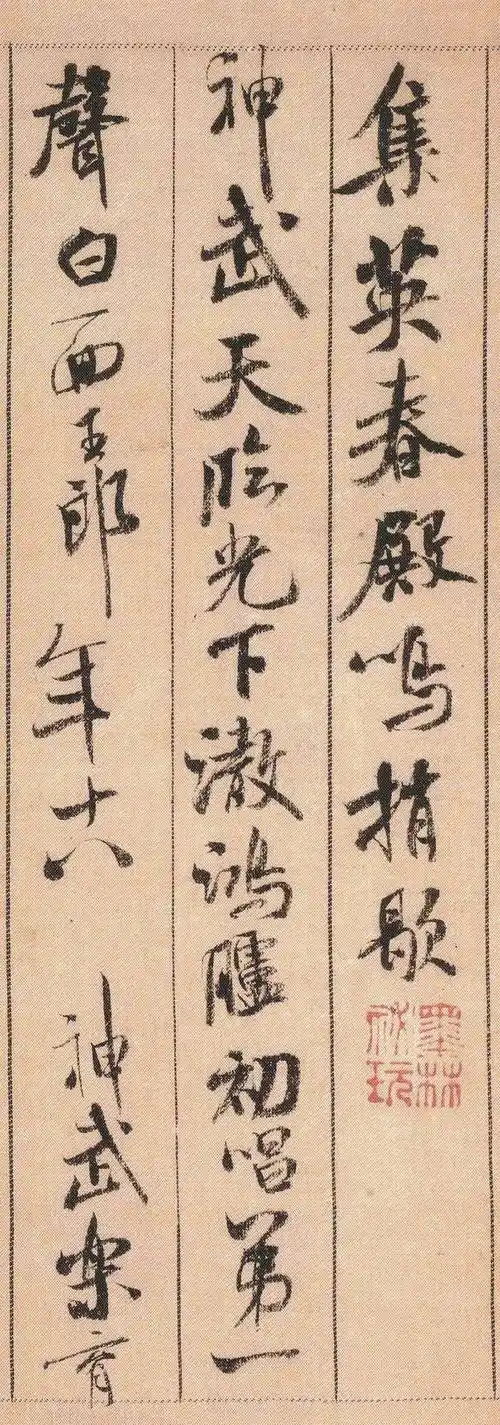 集英春殿鳴捎歇
神武天臨光下澈鴻臚初唱第一
聲白面玉郎年十八神武樂育
墨林祕玩